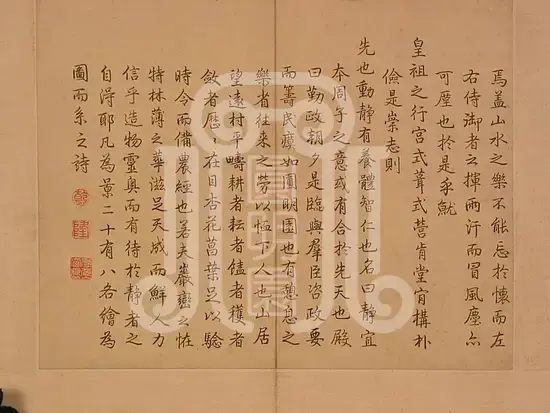 焉蓋山水之樂不能忘於懷而左
右侍御者之揮雨汗而冒風塵亦
可廑也於是乎就
皇祖之行宮式葺式營肯堂肯構朴
儉是崇志則
先也動靜有養體智仁也名曰靜宜
本周子之意或有合於先天也殿
曰勤政朝夕是臨與羣臣咨政要
而籌民瘼如圓明園也有憩息之
樂省往來之勞以恤下人也山居
望遠村平疇耕者耘者饁者穫者
斂者歷〻在目杏花菖葉足以驗
時令而備農經也若夫巖巒之恠
特林薄之華滋足天成而鮮人力
信乎造物靈奧而有待於靜者之
自得耶凡為景二十有八各繪為
圖而系之詩